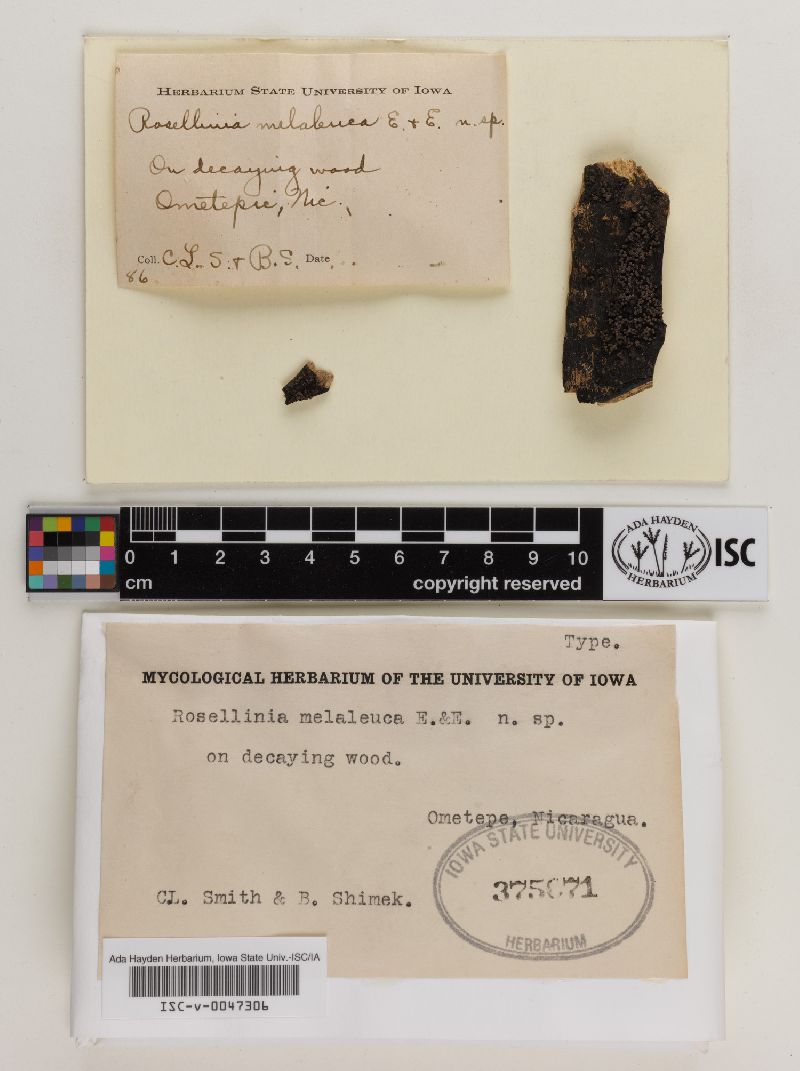 HERBARIUM STATE UNIVERSITY OF IOWA
Rosellinia melaleuca E. & E. n. sp.
On decaying wood
Ometepic, Nic.,
Coll. C.L. S. & B.S. Date
86
0 1 2 3 4 5 6 7 8 9 10
cm copyright reserved
ADA HAYDEN
HERBARIUM
ISC
Type.
MYCOLOGICAL HERBARIUM OF THE UNIVERSITY OF IOWA
Rosellinia melaleuca E.&E. n. sp.
on decaying wood.
Ometepe, Nicaragua.
IOWA STATE UNIVERSITY
375071
HERBARIUM
CL. Smith & B. Shimek.
Ada Hayden Herbarium, Iowa State Univ.-ISC/IA
ISC-v-0047306